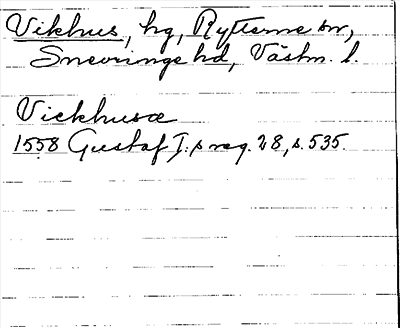 Vikhus, hg, Rytterne sn,
Snevringe hd, Västm. l.
Vickhusa
1558 Gustaf I:s reg. 28, s. 535.